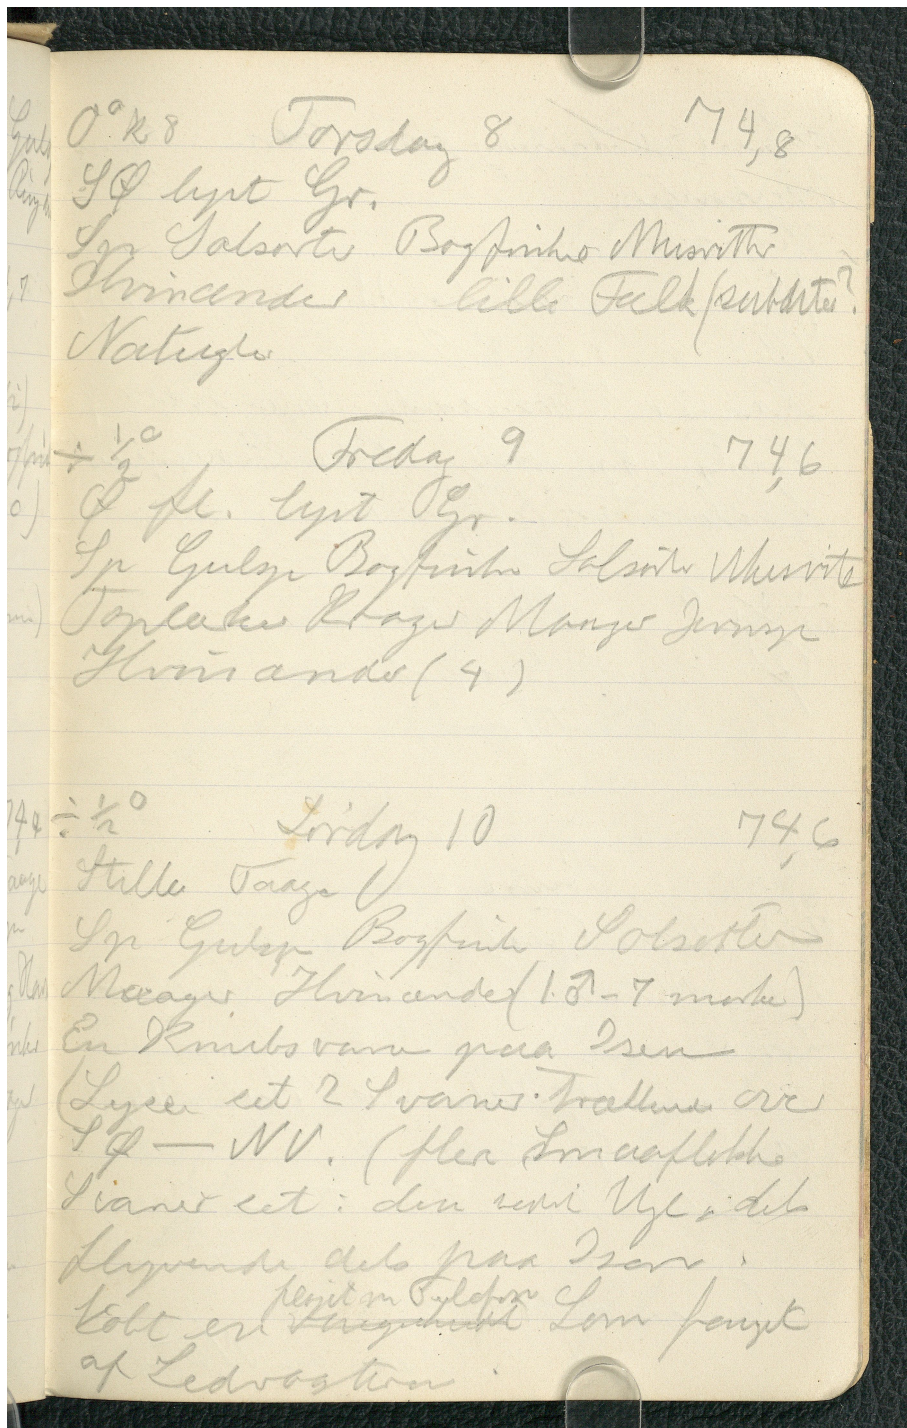 0° k 8 Torsdag 8 74,8
SØ lyst Gr.
Sp Solsorte Bogfinke Musvitter
Hvinænder lille Falk (
Natugle
÷ ½° Fredag 9 74,6
Ø fl. lyst Gr.
Sp Gulsp Bogfinke Solsorte Musvite
Toplærke Krager Maager Jernsp
Hvinænder (4)
÷ ½° Lørdag 10 74,6
Stille Taage
Sp Gulsp Bogfinke Solsorte
Maager Hvinænder (1 ♂ - 7 mørke)
En Knubsvane paa Isen
set 2 Svaner over
SØ — NV. (flere Smaaflokke
Svaner set i den Uge, dels
flyvende dels paa Isen.
Købt en Lom fanget
af Ledvogteren